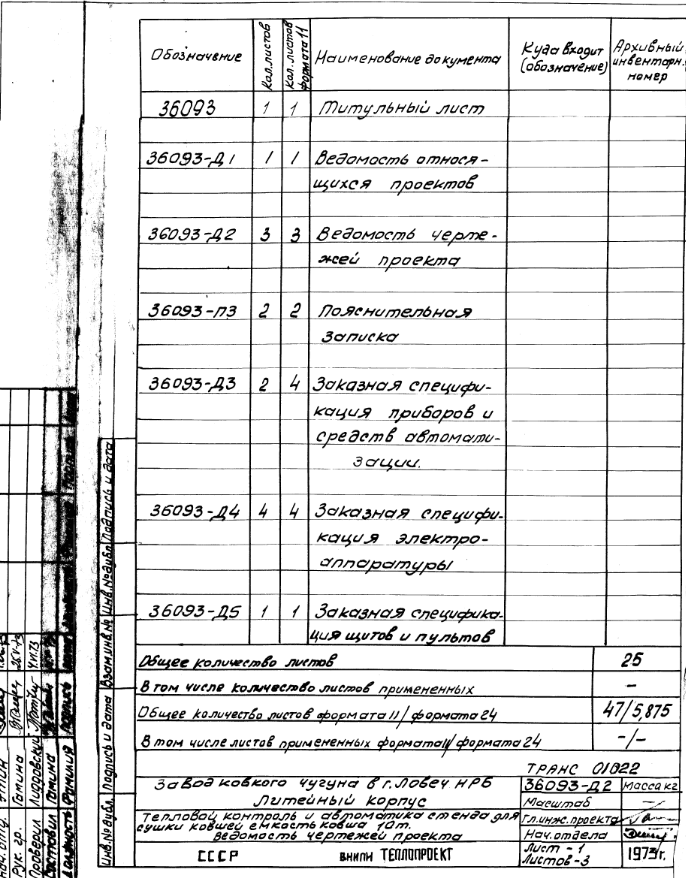 Обозначение Кол.листов Кол. листов формата 11 Наименование документа Куда входит (обозначение) Архивный инвентарн. номер
36093 1 1 Титульный лист
36093-Д1 1 1 Ведомость относя-
щихся проектов
36093-Д2 3 3 Ведомость черте-
жей проекта
36093-ПЗ 2 2 Пояснительная
записка
36093-Д3 2 4 Заказная специфи-
кация приборов и
средств автомати-
зации.
36093-Д4 4 4 Заказная специфи-
кация электро-
аппаратуры
36093-Д5 1 1 Заказная специфика-
ция щитов и пультов
Общее количество листов 25
В том числе количество листов примененных -
Общее количество листов формата 11/ формата 24 47/5,875
В том числе листов примененных формата 11/ формата 24 -/-
ТРАНС 01822
Завод ковкого чугуна в г.Ловеч НРБ 36093-Д2 Масса кг
Литейный корпус Масштаб
Тепловой контроль и автоматика стенда для Гл.инж.проекта
сушки ковшей емкость ковша 10т. Нач.отдела
Ведомость чертежей проекта
СССР ВНИПИ ТЕПЛОПРОЕКТ Лист - 1
Листов - 3 1973г.
Инв.№ дубл. Подпись и дата Взам.инв.№ Инв.№ дубл. Подпись и дата
Должность Фамилия
Составил Гомина
Проверил
Рук. гр. Гомина